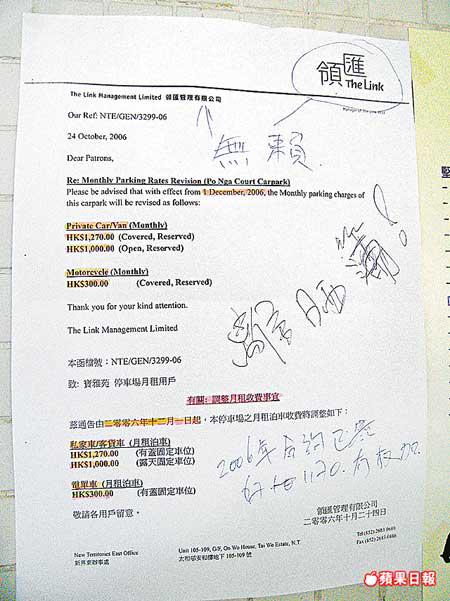 領匯
The Link
The Link Management Limited 領匯管理有限公司
Our Ref: NTE/GEN/3299-06
無賴
24 October, 2006
Dear Patrons,
Re: Monthly Parking Rates Revision (Po Nga Court Carpark)
Please be advised that with effect from 1 December, 2006, the Monthly parking charges of
this carpark will be revised as follows:
Private Car/Van (Monthly)
HK$1,270.00 (Covered, Reserved)
HK$1,000.00 (Open, Reserved)
Motorcycle (Monthly)
HK$300.00 (Covered, Reserved)
Thank you for your kind attention.
The Link Management Limited
本函檔號：NTE/GEN/3299-06
致: 寶雅苑 停車場月租用戶
有關: 調整月租收費事宜
茲通告由二零零六年十二月一日起，本停車場之月租泊車收費將調整如下：
私家車/客貨車 (月租泊車)
HK$1,270.00 (有蓋固定車位)
HK$1,000.00 (露天固定車位)
電單車 (月租泊車)
HK$300.00 (有蓋固定車位)
2006年合約已簽
敬請各用戶留意。
領匯管理有限公司
二零零六年十月二十四日
New Territories East Office
新界東辦事處
Unit 105-109, G/F, On Wo House, Tai Wo Estate, N.T.
太和邨安和樓地下 105-109 號
Tel (852) 2683 0680
蘋果日報